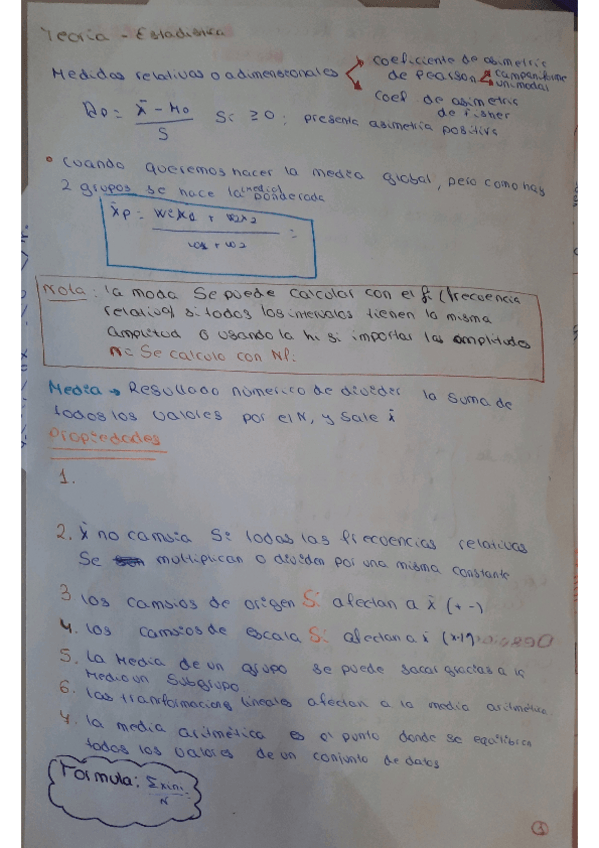 Teoría - Estadística
Medidas relativas o adimensionales
coeficiente de asimetric
de Pearson campaniforme
unimodal
coef de asimetric
de Fisher
Ap = x̄ - Mo / S Si ≥ 0: presente asimetria positiva
• Cuando queremos hacer la media global, pero como hay
2 grupos se hace la (media) ponderada
x̄p = w1x1 + w2x2 / w1 + w2 =
Nota: la moda se puede calcular con el fi (frecuencia
relativa) si todos los intervalos tienen la misma
amplitud o usando la hi si importar las amplitudes
Se calcula con
Media → Resultado númerico de dividir la suma de
todos los valores por el N, y sale x̄
Propiedades
1.
2. x̄ no cambia si todas las frecuencias relativas
se multiplican o dividen por una misma constante
3 los cambios de origen Sí afectan a x̄ (+ -)
4. los cambios de escala Sí afectan a x̄
5. la media de un grupo se puede sacar gracias a la
media un subgrupo
6. las tranformacions lineales afectan a la media aritmética.
7. la media aritmética es el punto donde se equilibra
todos los valores de un conjunto de datos
Formula: Σxini / N =